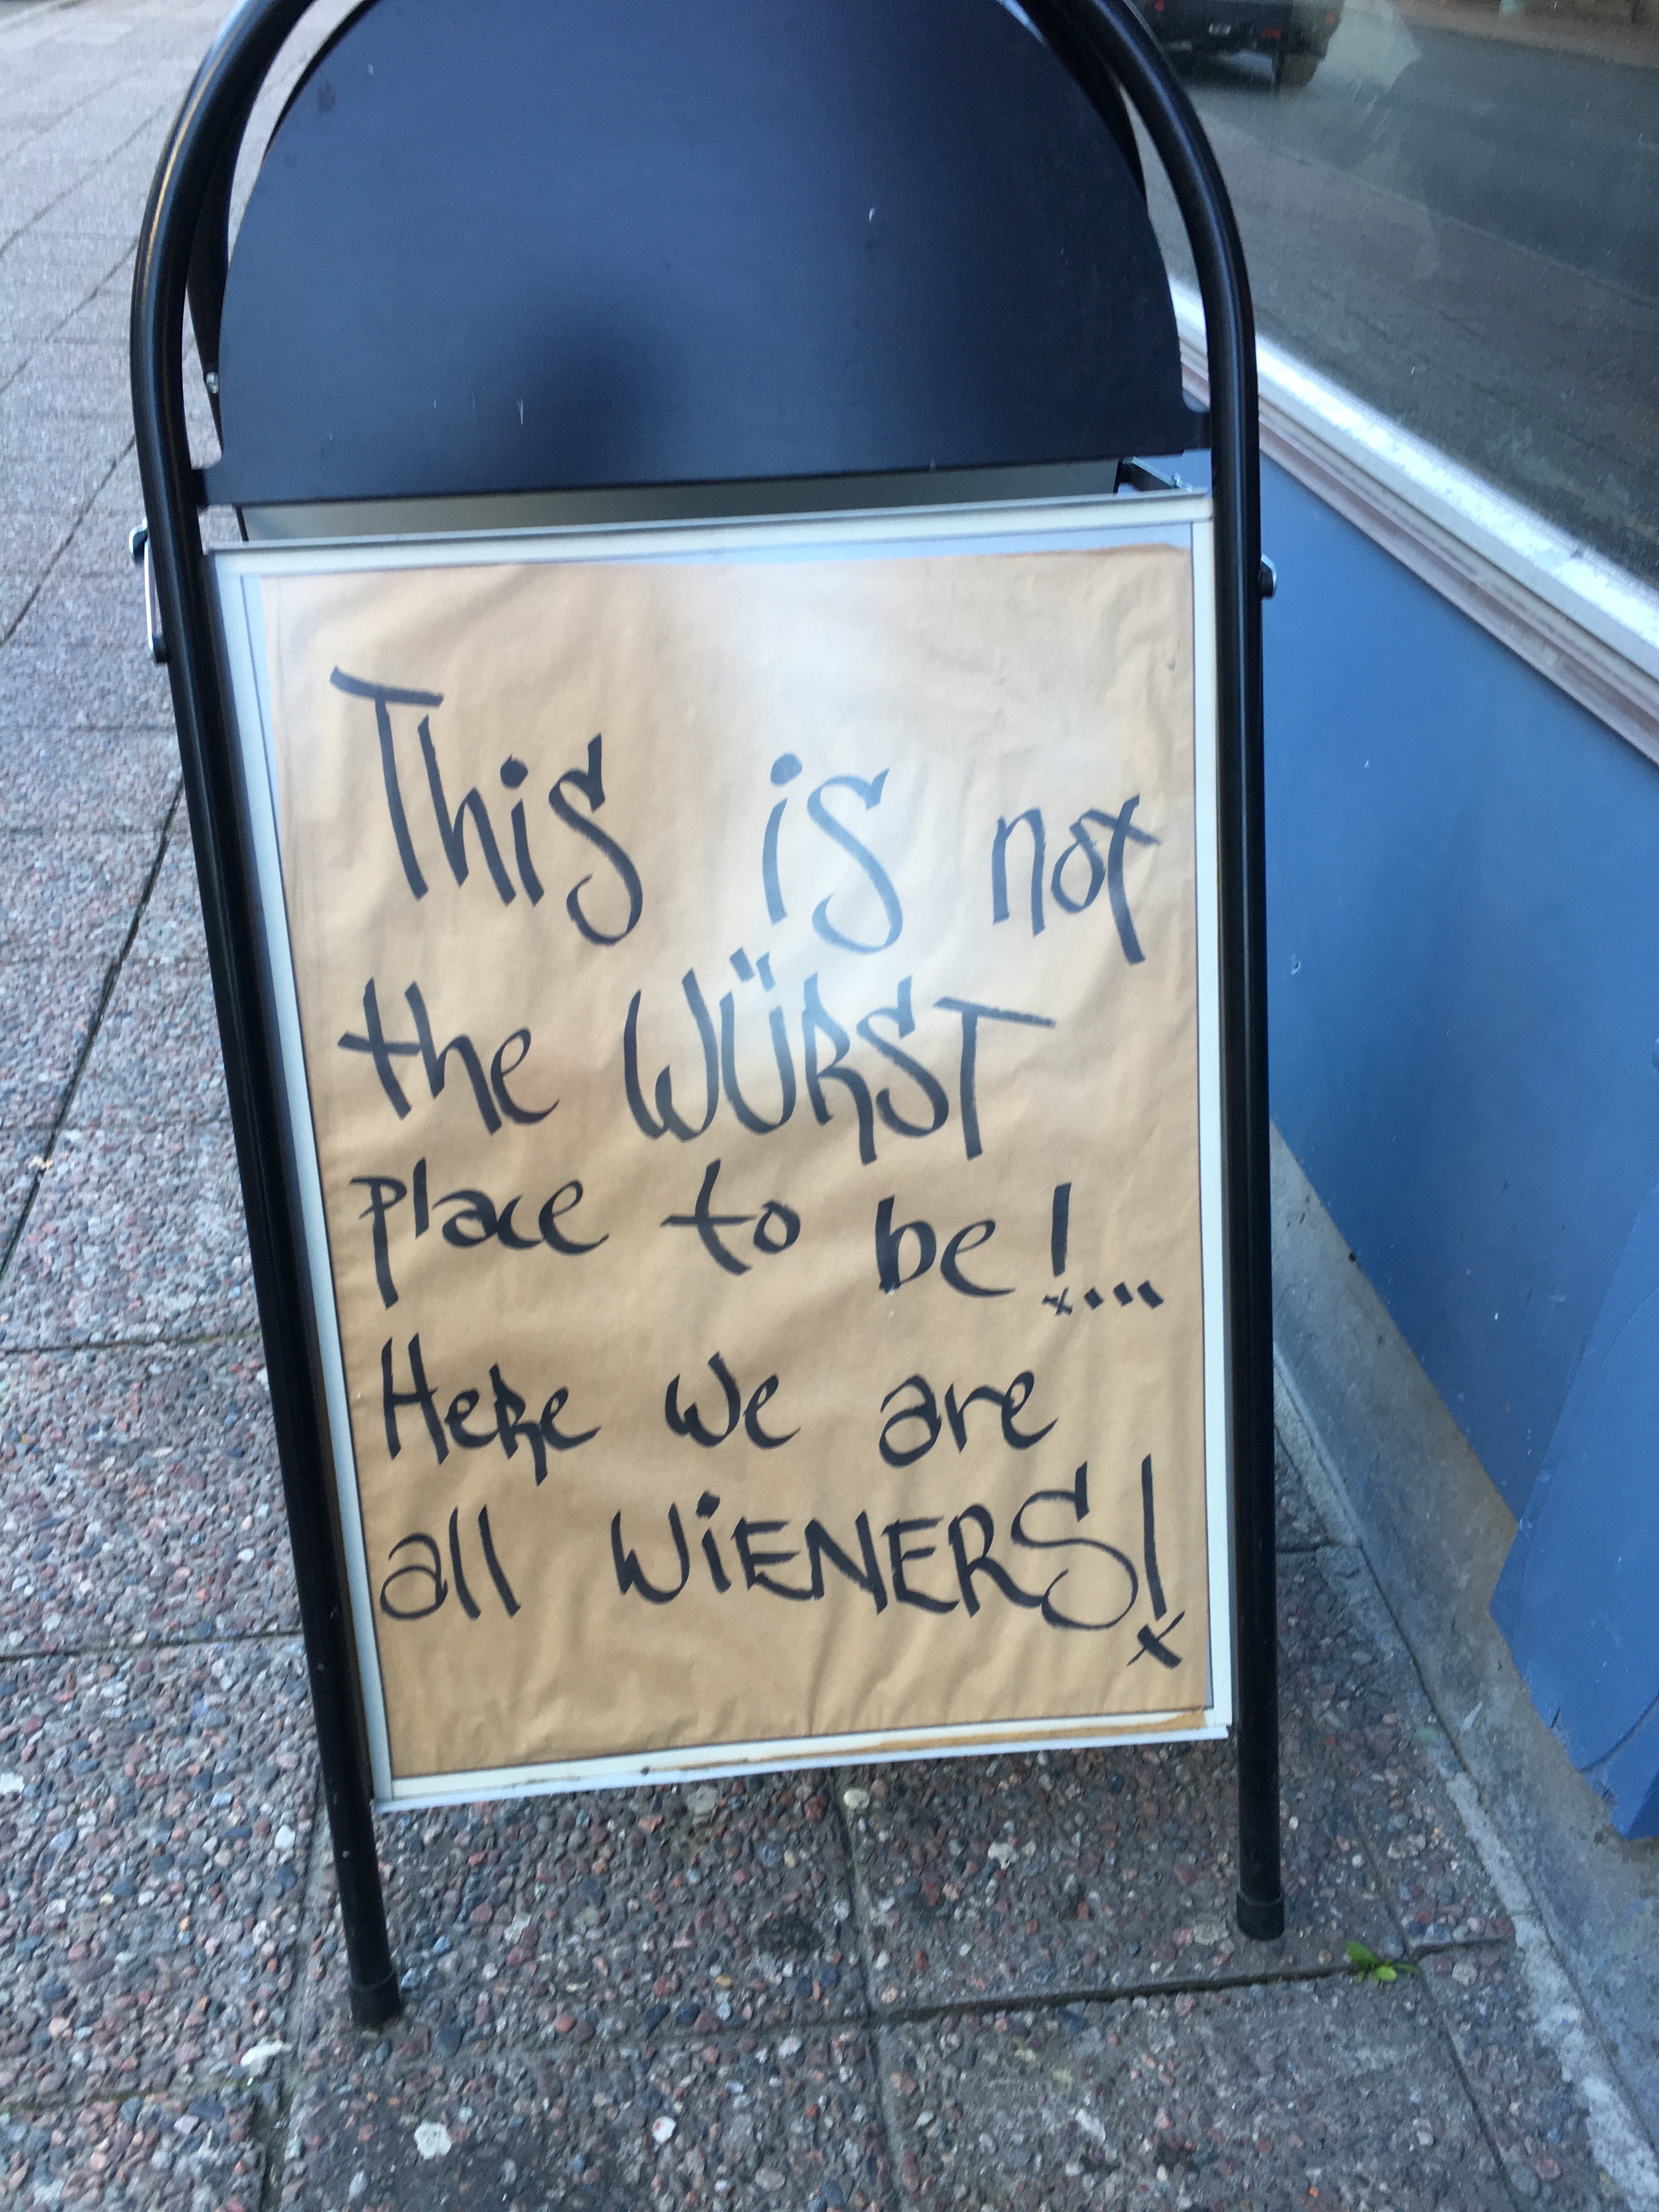 This is not
the WÜRST
place to be!...
Here we are
all WiENERS!